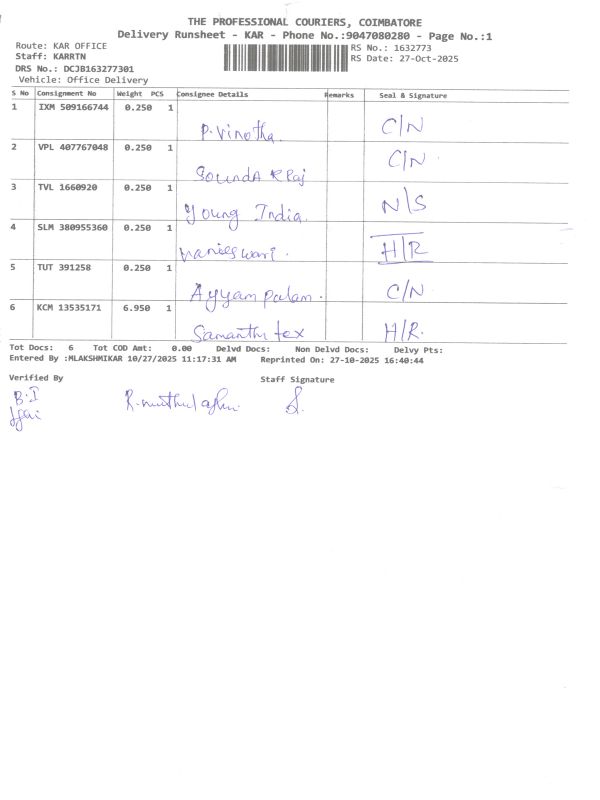 THE PROFESSIONAL COURIERS, COIMBATORE
Delivery Runsheet - KAR - Phone No.:9047080280 - Page No.:1
Route: KAR OFFICE
RS No.: 1632773
Staff: KARRTN
RS Date: 27-Oct-2025
DRS No.: DCJB163277301
Vehicle: Office Delivery
S No Consignment No Weight PCS Consignee Details Remarks Seal & Signature
1 IXM 509166744 0.250 1 P. Vinotha. C/N
2 VPL 407767048 0.250 1 C/N
3 TVL 1660920 0.250 1 Young India. N/S
4 SLM 380955360 0.250 1 H/R
5 TUT 391258 0.250 1 Ayyampalam. C/N
6 KCM 13535171 6.950 1 Samanthi tex H/R.
Tot Docs: 6 Tot COD Amt: 0.00 Delvd Docs: Non Delvd Docs: Delvy Pts:
Entered By :MLAKSHMIKAR 10/27/2025 11:17:31 AM Reprinted On: 27-10-2025 16:40:44
Verified By Staff Signature